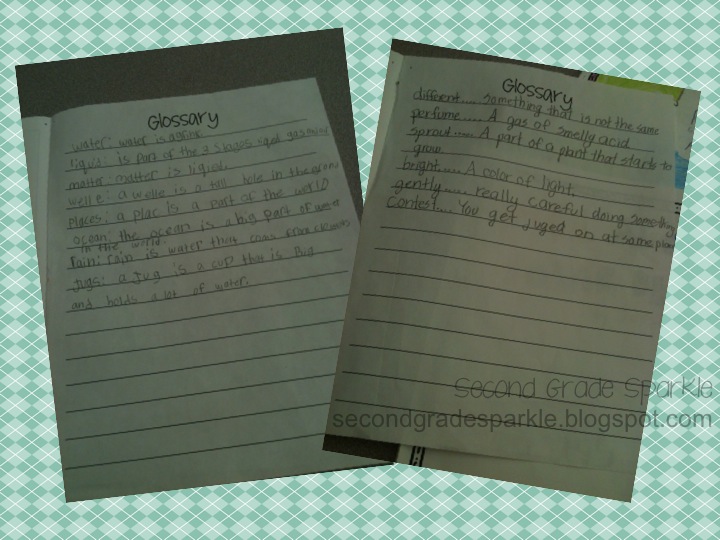 Glossary
water: water is
liquid: is part of the 3 stages liqed gas
matter: matter is liquid.
welle: a welle is a hole in the
places: a plac is a part of the world
ocean: the ocean is a big part of water
in the world.
rain: rain is water that from
Jugs: a Jug is a cup that is Big
and holds a lot of water.
Glossary
different..... something that is not the same
perfume.... A gas of smelly acid
sprout..... A part of a plant that starts to
grow
bright..... A color of light.
gently..... really careful doing something
Contest.... You get juged on at some place
Second Grade Sparkle
secondgradesparkle.blogspot.com